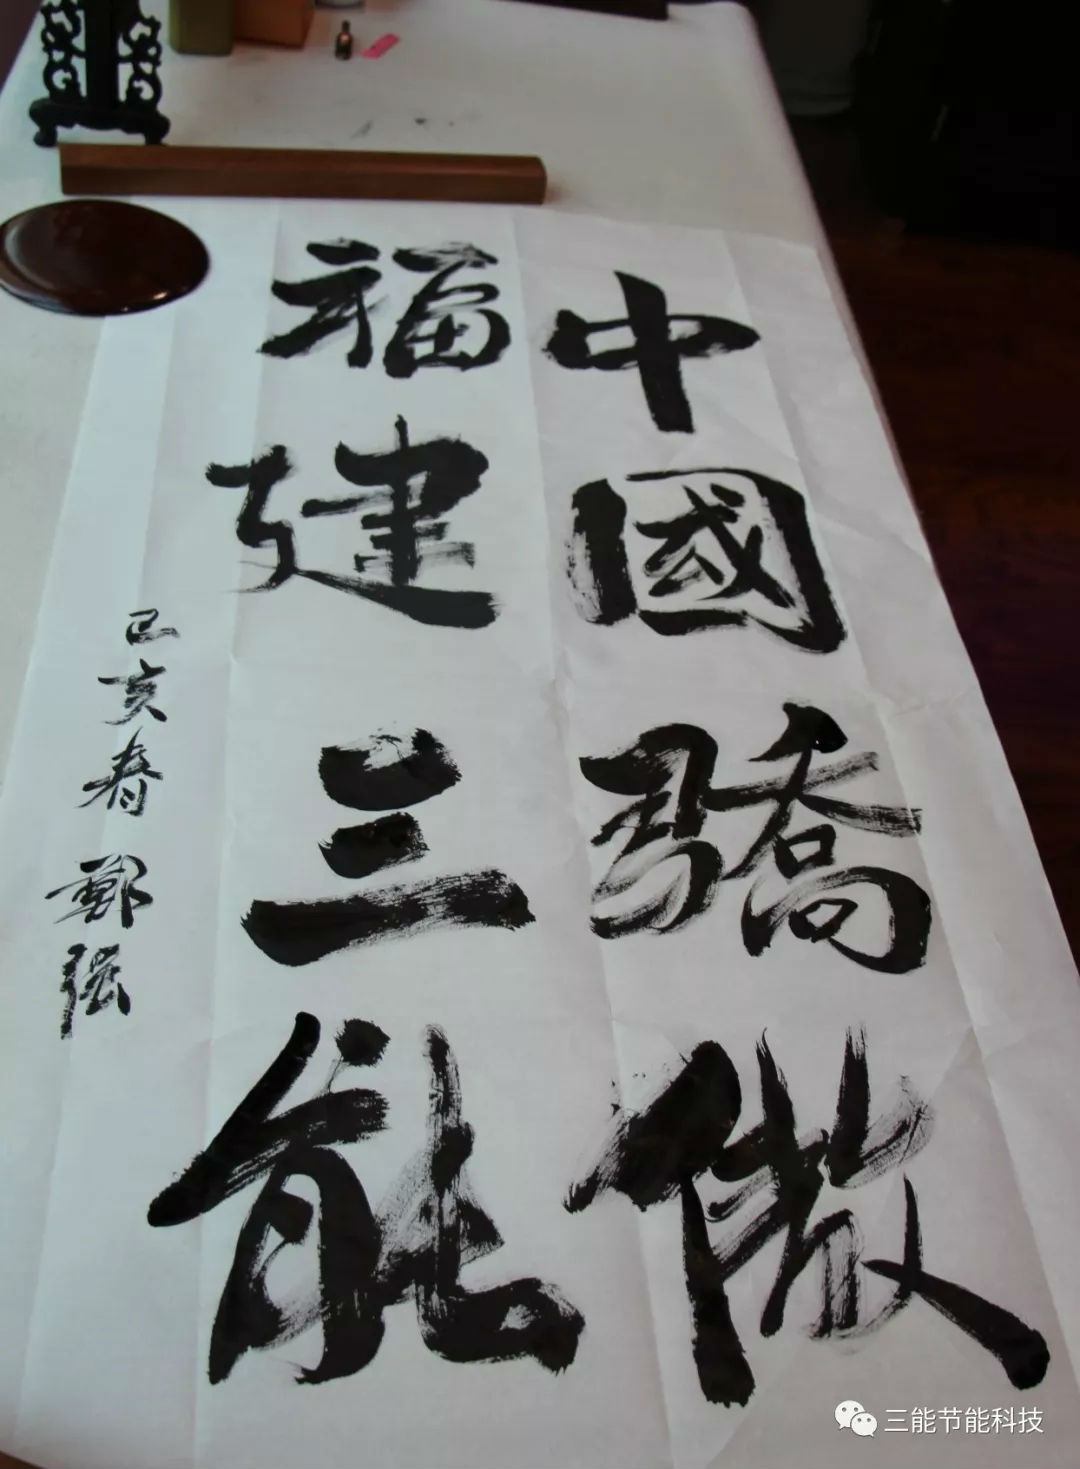 中國驕傲
福建三能
己亥春 鄭强
三能节能科技